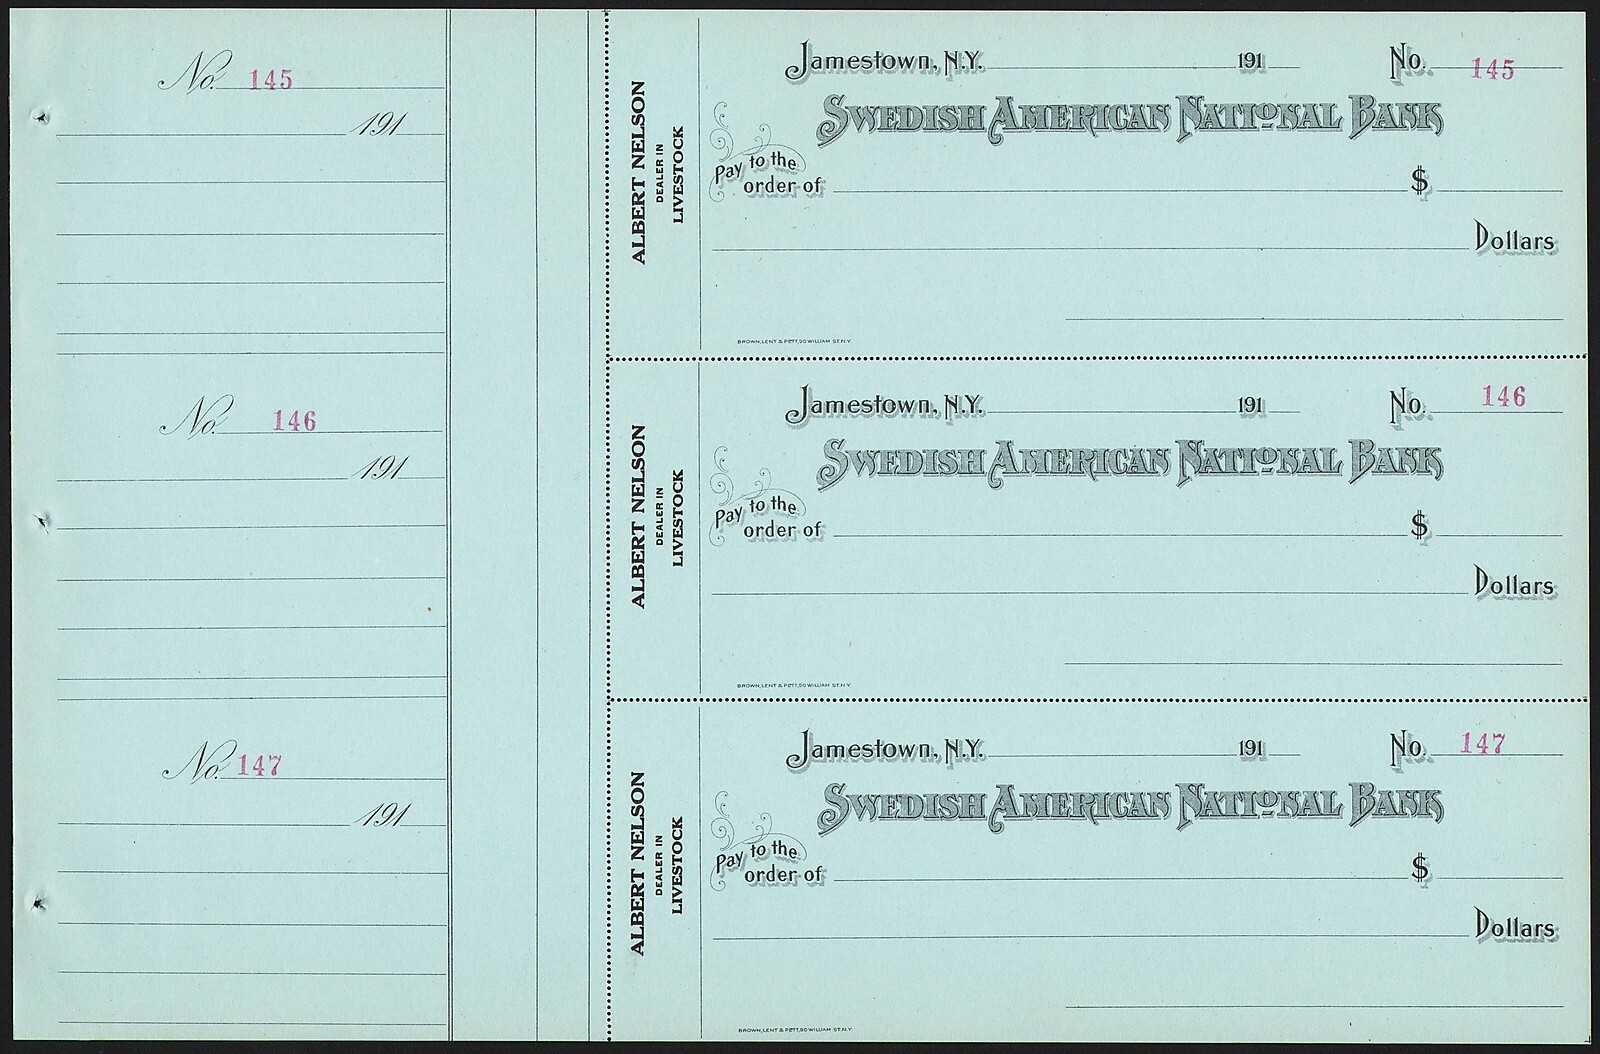 No. 145
191
ALBERT NELSON
DEALER IN
LIVESTOCK
Jamestown, N.Y. 191 No. 145
SWEDISH AMERICAN NATIONAL BANK
Pay to the
order of $
Dollars
BROWN, LENT & PETT, 90 WILLIAM ST. N.Y.
No. 146
191
ALBERT NELSON
DEALER IN
LIVESTOCK
Jamestown, N.Y. 191 No. 146
SWEDISH AMERICAN NATIONAL BANK
Pay to the
order of $
Dollars
BROWN, LENT & PETT, 90 WILLIAM ST. N.Y.
No. 147
191
ALBERT NELSON
DEALER IN
LIVESTOCK
Jamestown, N.Y. 191 No. 147
SWEDISH AMERICAN NATIONAL BANK
Pay to the
order of $
Dollars
BROWN, LENT & PETT, 90 WILLIAM ST. N.Y.